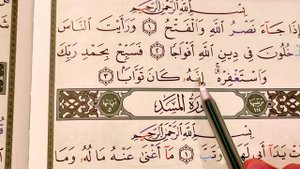 بِسْمِ اللَّهِ الرَّحْمَٰنِ الرَّحِيمِ
إِذَا جَاءَ نَصْرُ اللَّهِ وَالْفَتْحُ ۝١ وَرَأَيْتَ النَّاسَ
يَدْخُلُونَ فِي دِينِ اللَّهِ أَفْوَاجًا ۝٢ فَسَبِّحْ بِحَمْدِ رَبِّكَ
وَاسْتَغْفِرْهُ ۚ إِنَّهُ كَانَ تَوَّابًا ۝٣
سُورَةُ الْمَسَدِ
بِسْمِ اللَّهِ الرَّحْمَٰنِ الرَّحِيمِ
تَبَّتْ يَدَا أَبِي لَهَبٍ وَتَبَّ ۝١ مَا أَغْنَىٰ عَنْهُ مَالُهُ وَمَا